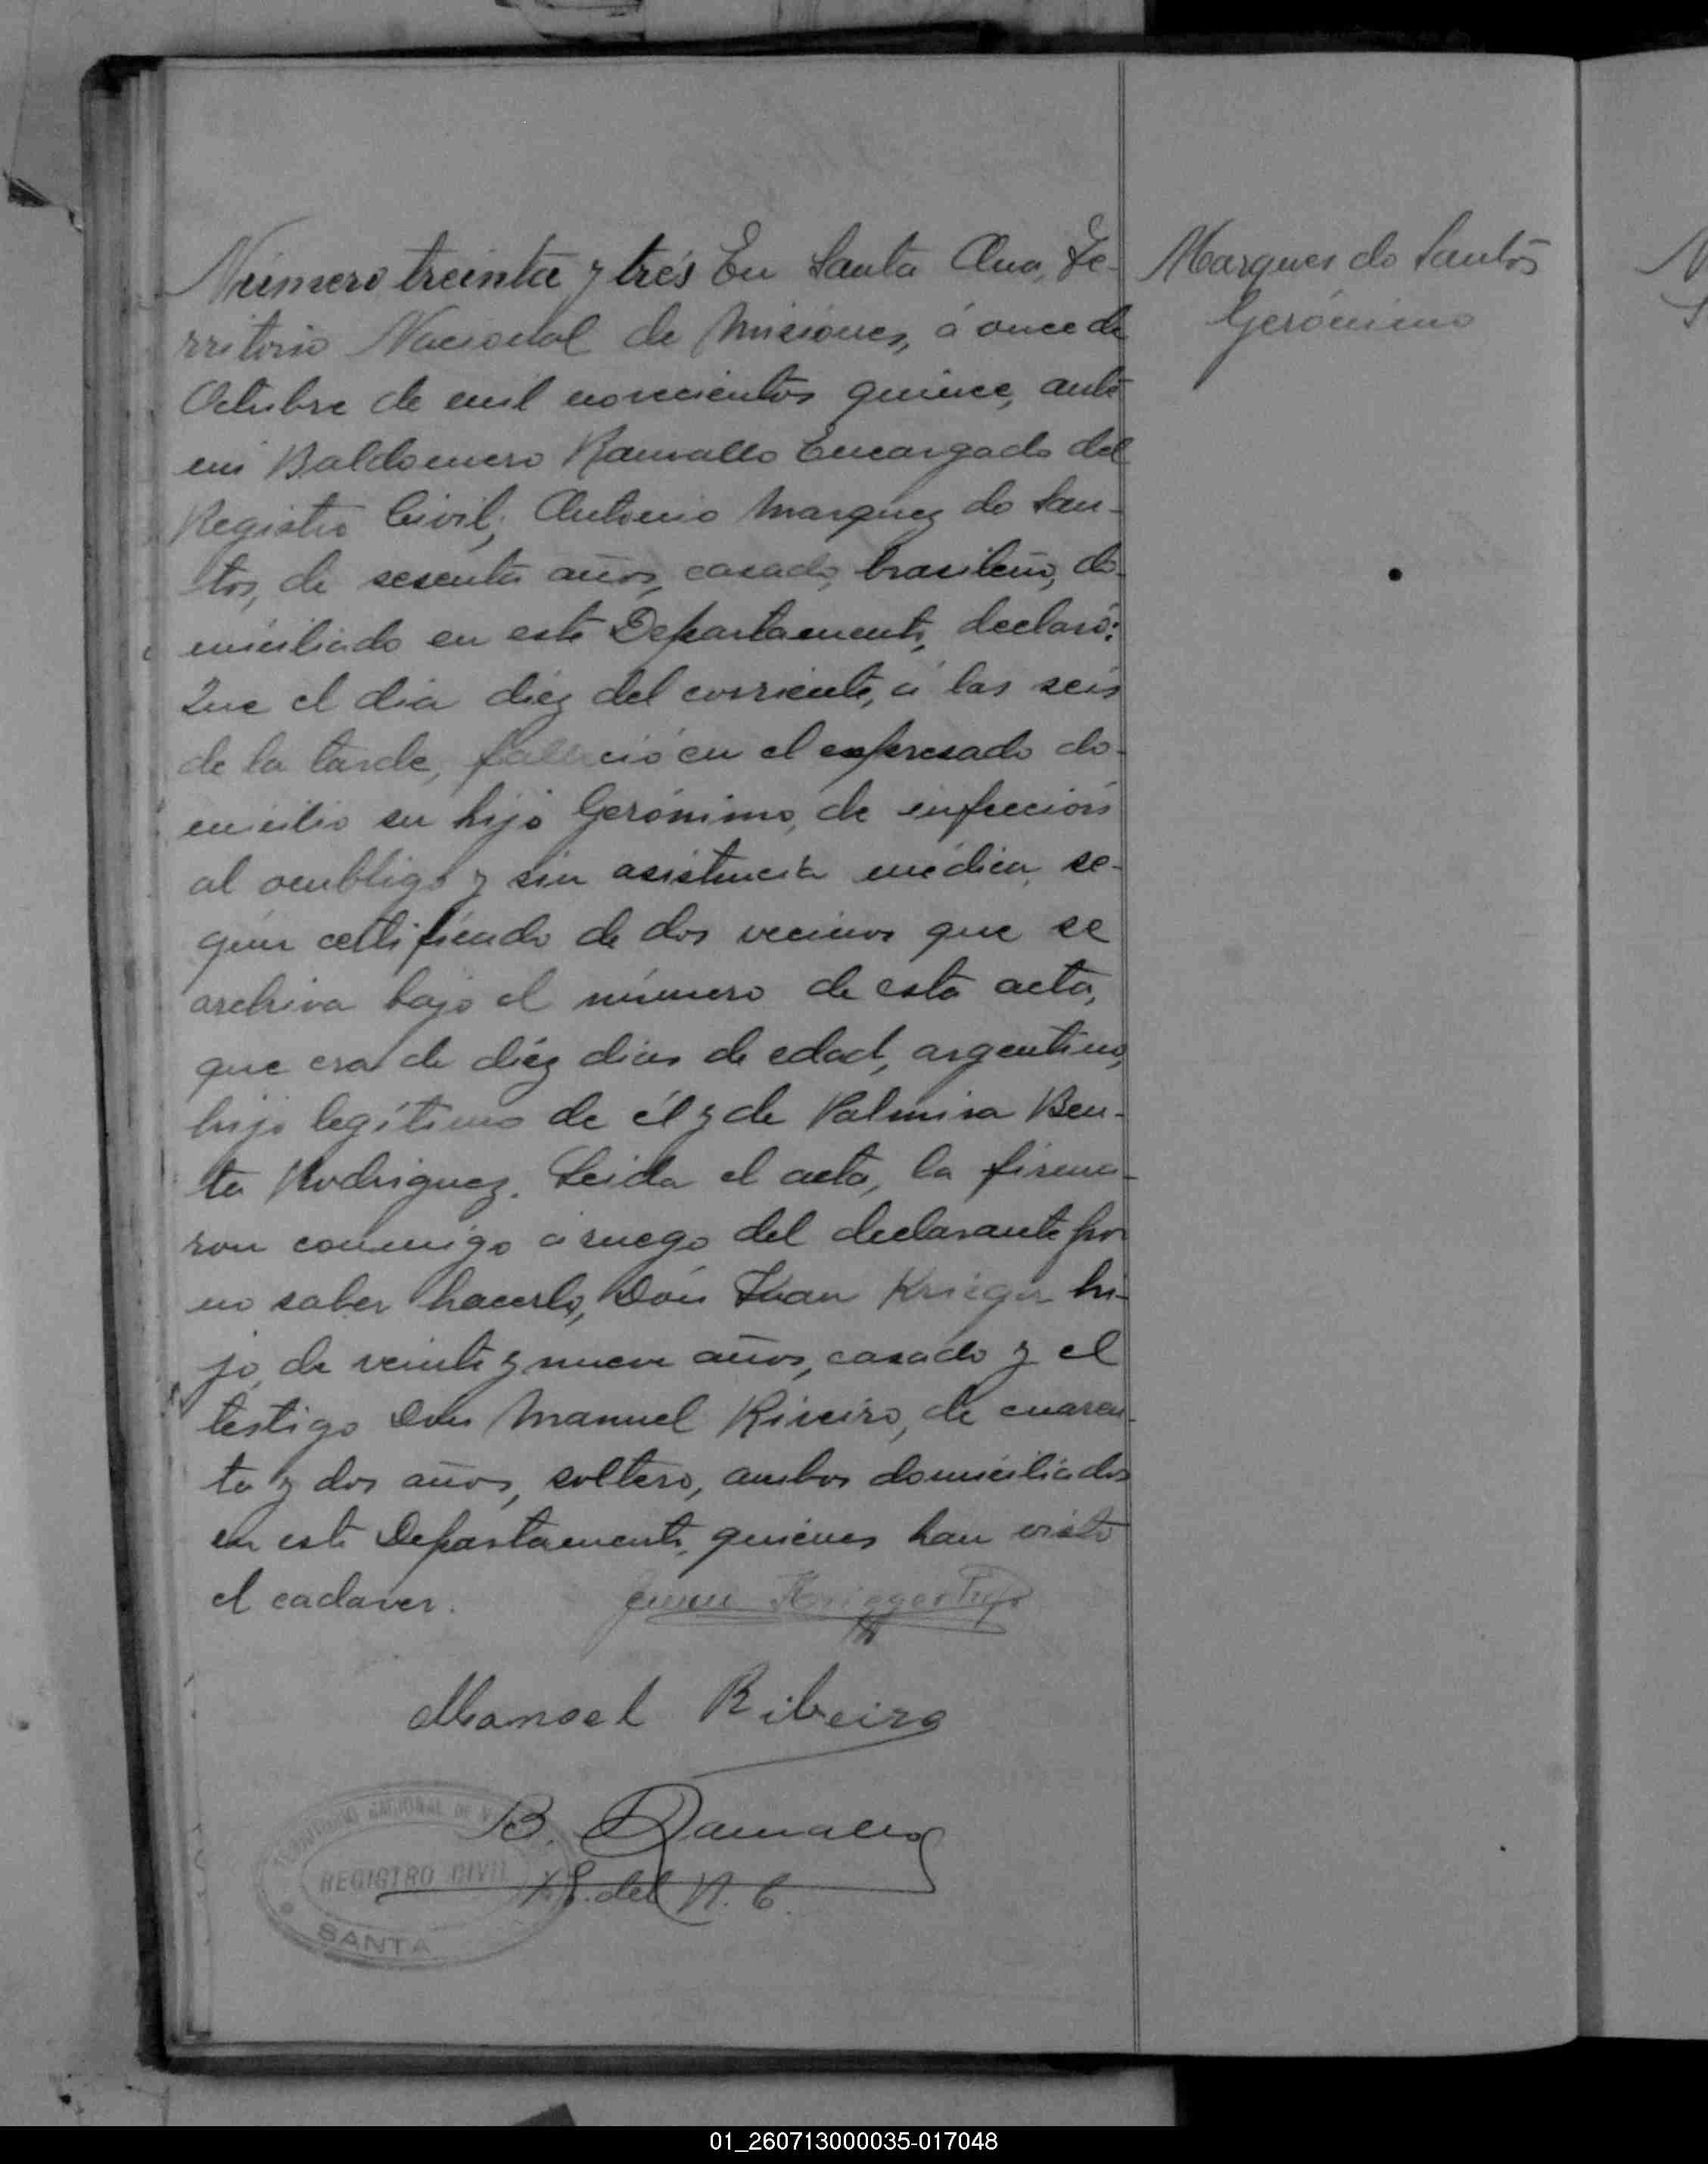 Número treinta y trés En Santa Ana, Te-
rritorio Nacional de Misiones, á once de
Octubre de mil novecientos quince, ante
mi Baldomero Ramallo Encargado del
Registro Civil; Antonio Marquez do San-
tos, de sesenta años, casado, brasileño, do-
miciliado en este Departamento, declaró:
Que el dia diéz del corriente, á las seis
de la tarde, falleció en el expresado do-
micilio su hijo Gerónimo, de infección
al ombligo y sin asistencia médica, se-
gún certificado de dos vecinos que se
archiva bajo el número de esta acta,
que era de diéz dias de edad, argentino,
hijo legítimo de él y de Palmira Ben-
ta Rodriguez. Leida el acta, la firma-
ron conmigo á ruego del declarante por
no saber hacerlo, Don Juan Krieger hi-
jo, de veinte y nueve años, casado y el
testigo Don Manuel Riveiro, de cuaren-
ta y dos años, soltero, ambos domiciliados
en este Departamento, quienes han visto
el cadaver.
Marques do Santos
Gerónimo
Manoel Ribeiro
B. Ramallo
E. del R. C.
TERRITORIO NACIONAL DE
REGISTRO CIVIL
SANTA
01_260713000035-017048